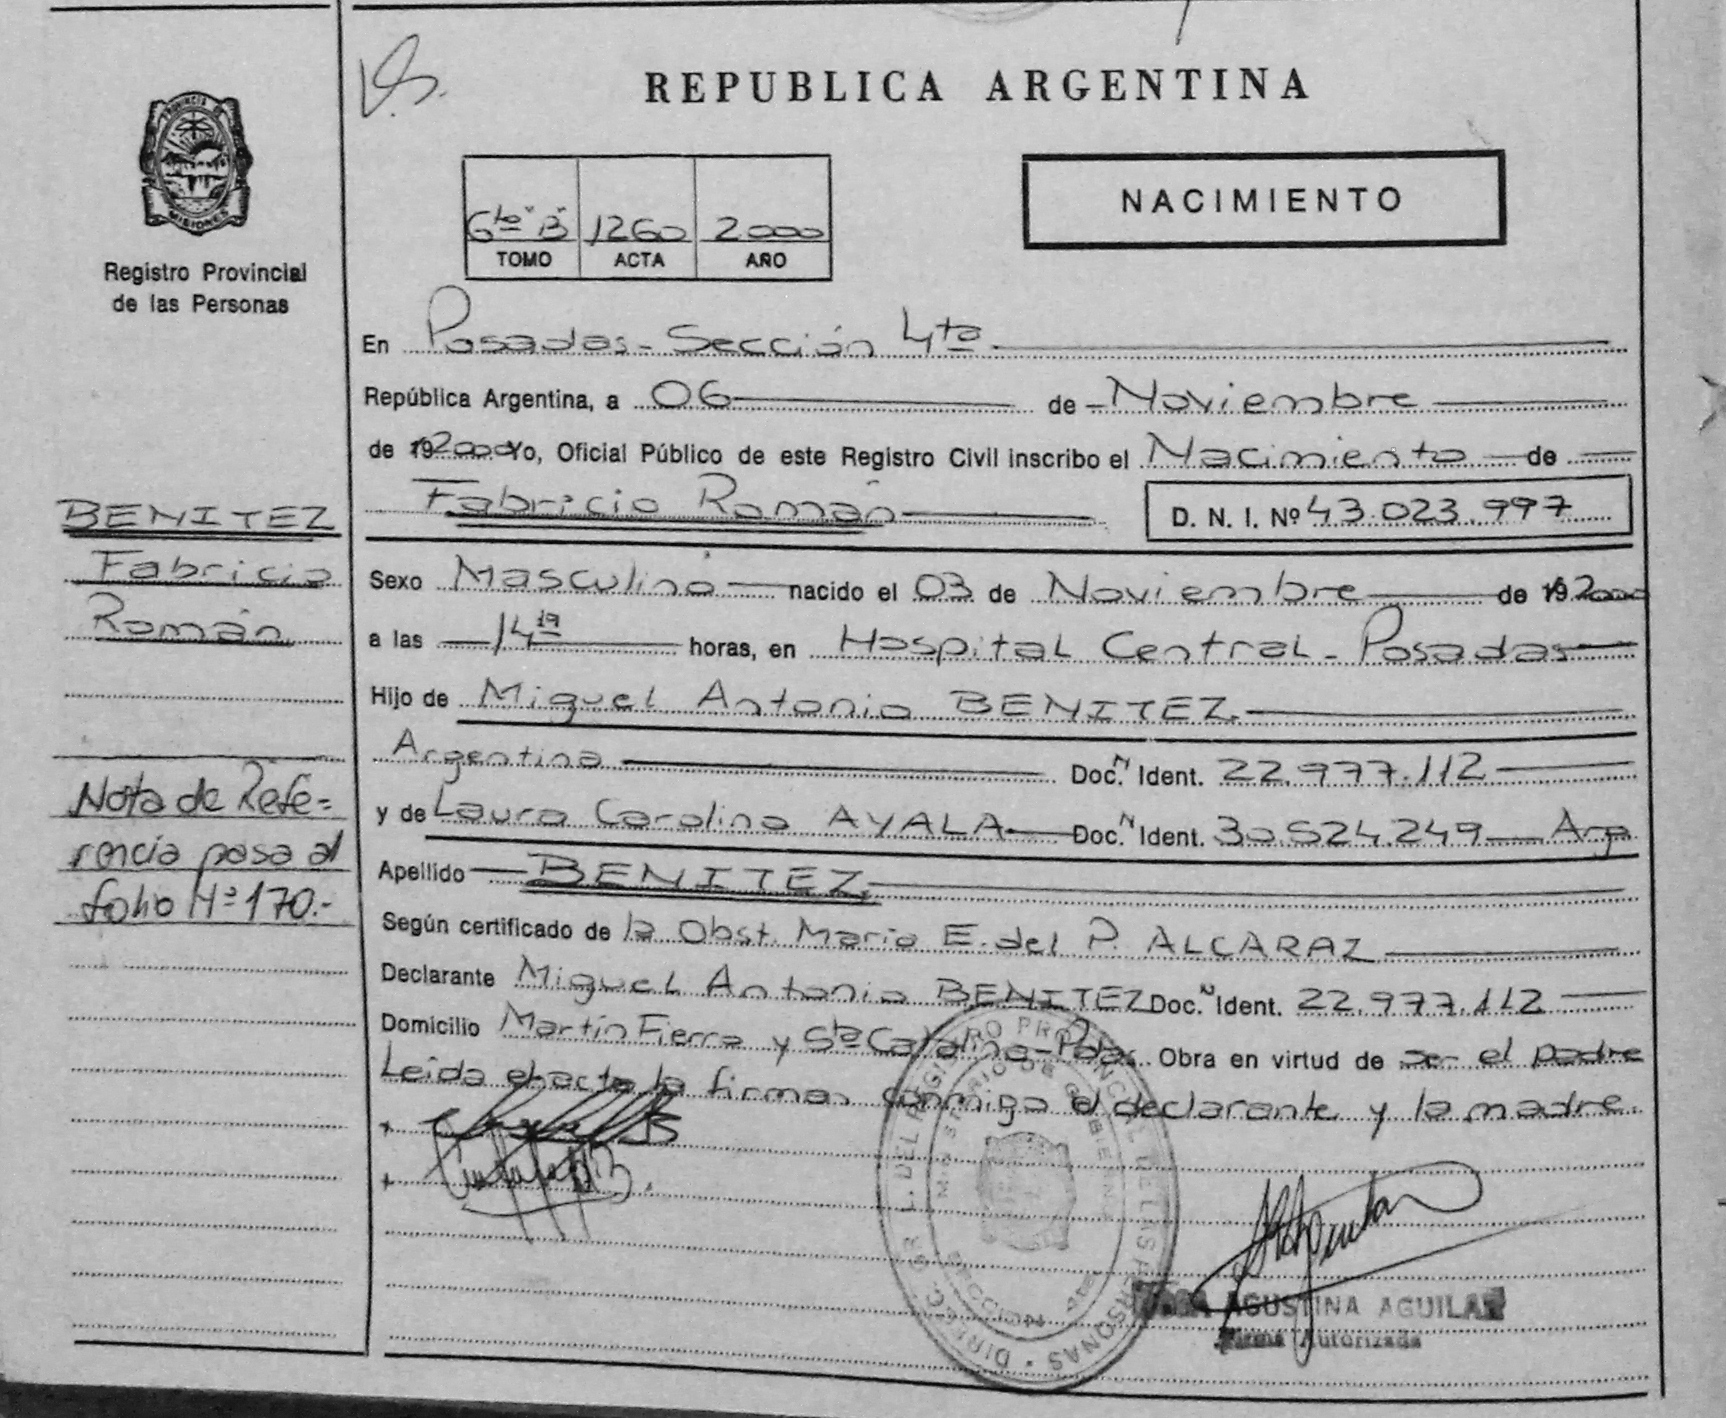 REPUBLICA ARGENTINA
PROVINCIA DE
MISIONES
Registro Provincial
de las Personas
NACIMIENTO
6to "B" 1260 2000
TOMO ACTA AÑO
En Posadas - Sección 4ta
República Argentina, a 06 de Noviembre
de 192000 Yo, Oficial Público de este Registro Civil inscribo el Nacimiento de
Fabricio Román D. N. I. Nº 43.023.997
Sexo Masculino nacido el 03 de Noviembre de 192000
a las 14 19 horas, en Hospital Central - Posadas
Hijo de Miguel Antonio BENITEZ
Argentina Doc. N Ident. 22.977.112
y de Laura Carolina AYALA Doc. N Ident. 30.524.249 Arg
Apellido BENITEZ
Según certificado de la Obst. Maria E. del P. ALCARAZ
Declarante Miguel Antonio BENITEZ Doc. N Ident. 22.977.112
Domicilio Martín Fierro y Sta Catalina - Pdas. Obra en virtud de ser el padre
Leida el acta la firman conmigo el declarante y la madre.
BENITEZ
Fabricio
Román
Nota de Refe-
rencia pasa al
folio Nº 170.-
DIREC. GRAL. DEL REGISTRO PROVINCIAL DE LAS PERSONAS
MINISTERIO DE GOBIERNO
AGUSTINA AGUILAR
Firma Autorizada